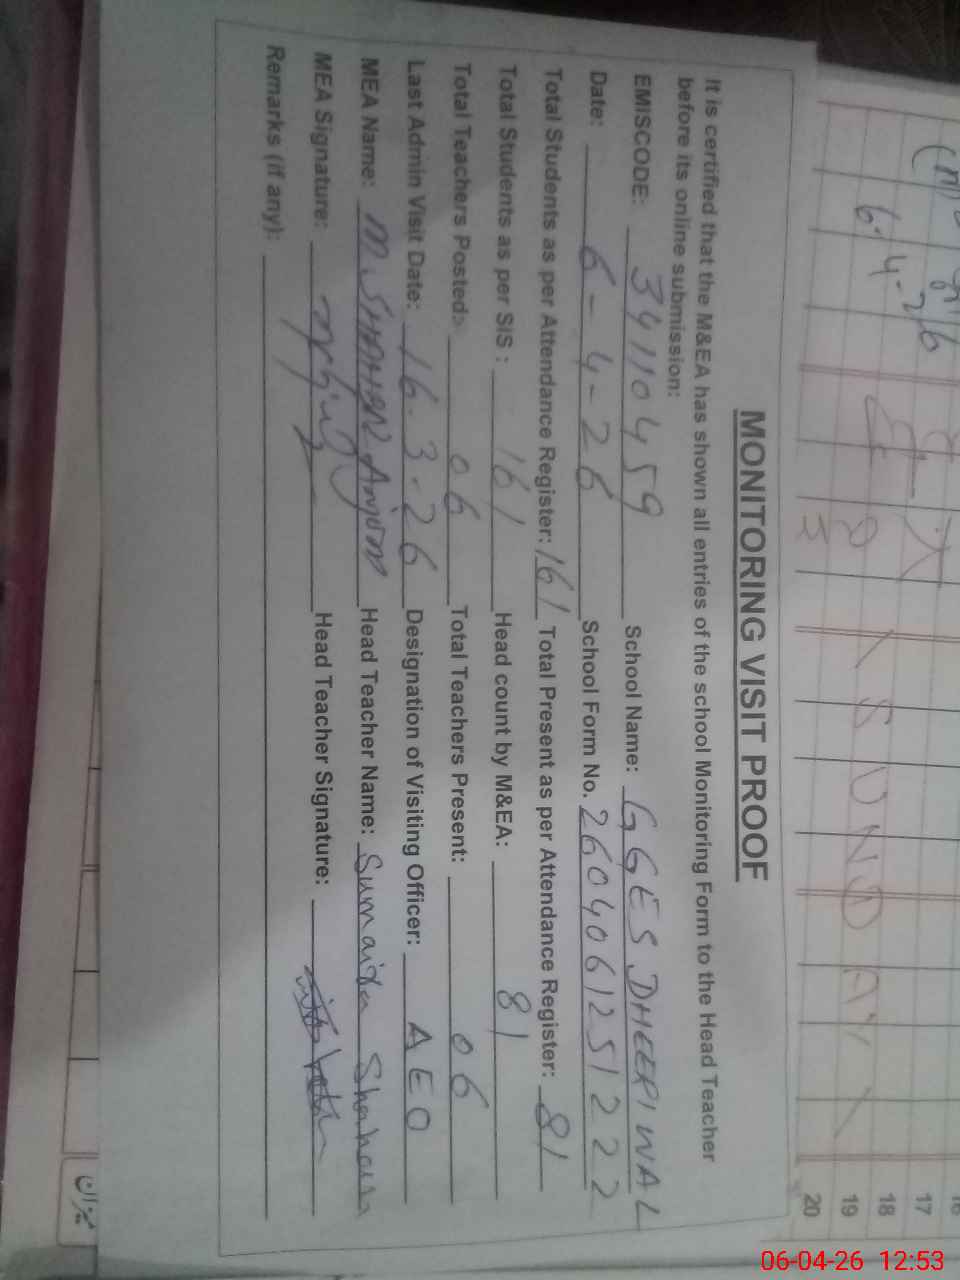 MONITORING VISIT PROOF
It is certified that the M&EA has shown all entries of the school Monitoring Form to the Head Teacher
before its online submission:
EMISCODE: 34110459 School Name: GGES DHEERIWAL
Date: 6-4-26 School Form No. 26040612512 22
Total Students as per Attendance Register: 161 Total Present as per Attendance Register: 81
Total Students as per SIS : 161 Head count by M&EA: 81
Total Teachers Posted: 06 Total Teachers Present: 06
Last Admin Visit Date: 16-3-26 Designation of Visiting Officer: AEO
MEA Name: M Anjum Head Teacher Name: Sumaira
MEA Signature: Head Teacher Signature:
Remarks (if any):
6-4-26
SUNDAY
16
17
18
19
20
میزان
06-04-26 12:53